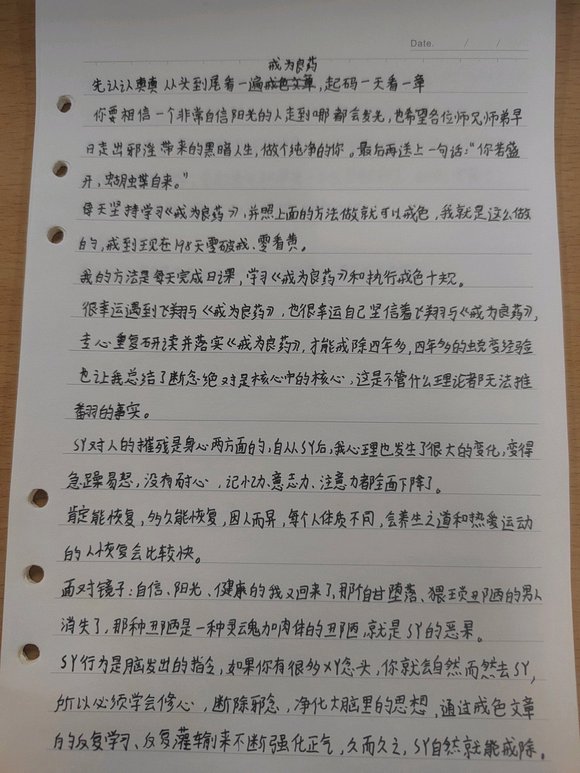 Date. / /
戒为良药
先认认真真从头到尾看一遍戒色文章，起码一天看一章
你要相信一个非常自信阳光的人走到哪都会发光，也希望各位师兄师弟早
日走出邪淫带来的黑暗人生，做个纯净的你。最后再送上一句话："你若盛
开，蝴蝶自来。"
每天坚持学习《戒为良药》，并照上面的方法做就可以戒色，我就是这么做
的，戒到现在198天零破戒、零看黄。
我的方法是每天完成日课，学习《戒为良药》和执行戒色十规。
很幸运遇到飞翔与《戒为良药》，也很幸运自己坚信着飞翔与《戒为良药》，
专心重复研读并落实《戒为良药》，才能戒除四年多，四年多的蜕变经验
也让我总结了断念绝对是核心中的核心，这是不管什么理论都无法推
翻的事实。
SY对人的摧残是身心两方面的，自从SY后，我心理也发生了很大的变化，变得
急躁易怒，没有耐心，记忆力、意志力、注意力都全面下降了。
肯定能恢复，多久能恢复，因人而异，每个人体质不同，会养生之道和热爱运动
的人恢复会比较快。
面对镜子：自信、阳光、健康的我又回来了，那个自甘堕落、猥琐丑陋的男人
消失了，那种丑陋是一种灵魂加肉体的丑陋，就是SY的恶果。
SY行为是脑发出的指令，如果你有很多XY念头，你就会自然而然去SY，
所以必须学会修心，断除邪念，净化大脑里的思想，通过戒色文章
的反复学习、反复灌输来不断强化正气，久而久之，SY自然就能戒除。